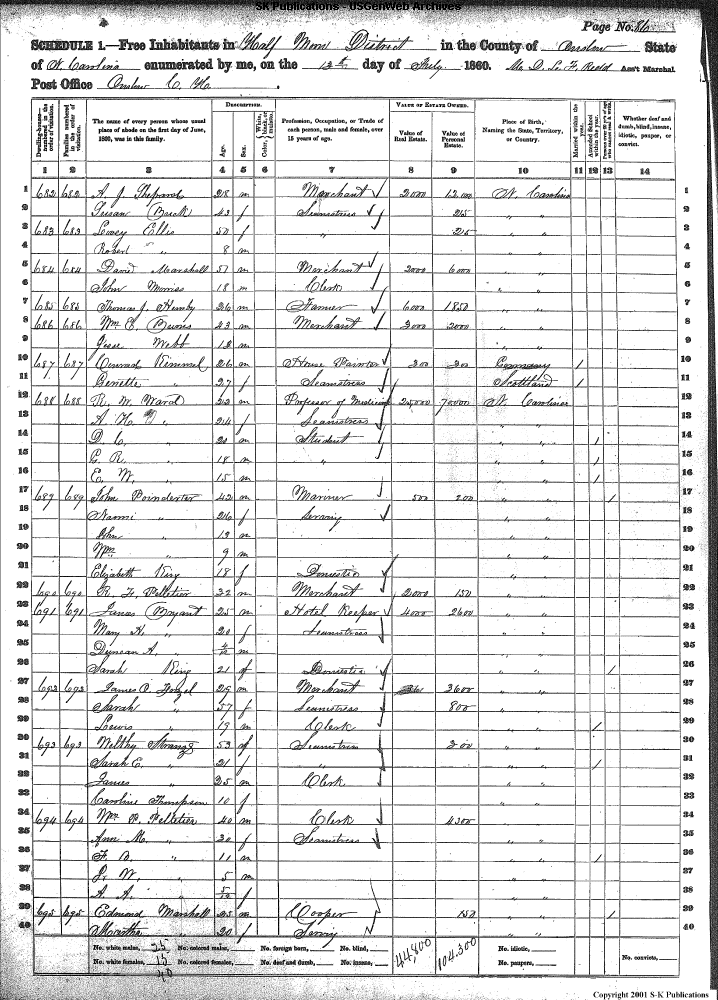 SK Publications - USGenWeb Archives
Page No. 86
SCHEDULE 1.—Free Inhabitants in Half Moon District in the County of Onslow State
of N. Carolina enumerated by me, on the 12th day of July 1860. Ass't Marshal.
Post Office Onslow C. H.
Dwelling-houses—numbered in the order of visitation.
Families numbered in the order of visitation.
The name of every person whose usual place of abode on the first day of June, 1860, was in this family.
DESCRIPTION.
Age.
Sex.
Color, White, black, or mulatto.
Profession, Occupation, or Trade of each person, male and female, over 15 years of age.
VALUE OF ESTATE OWNED.
Value of Real Estate.
Value of Personal Estate.
Place of Birth, Naming the State, Territory, or Country.
Married within the year.
Attended School within the year.
Whether deaf and dumb, blind, insane, idiotic, pauper, or convict.
1 2 3 4 5 6 7 8 9 10 11 12 13 14
1 682 682 A. J. Shepard 28 m Merchant 2000 12000 N. Carolina 1
2 Susan 43 f Seamstress 25 " " 2
3 683 683 Ellis 50 f " 25 " " 3
4 Robert " 8 m " " 4
5 684 684 David Marshall 57 m Merchant 2000 6000 " " 5
6 John Morriss 18 m Clerk " " 6
7 685 685 Thomas J. Humby 26 m Farmer 6000 1850 " " 7
8 686 686 Wm E. Burns 23 m Merchant 3000 2000 " " 8
9 Jesse Webb 12 m " " 9
10 687 687 Conrad Kimmel 26 m House Painter 200 200 Germany / 10
11 " 27 f Seamstress Scotland / 11
12 688 688 R. W. Ward 52 m Professor of Medicine 25,000 70,000 N. Carolina 12
13 A. H. " 24 f Seamstress " " 13
14 D. C. " 20 m Student " " / 14
15 C. R. " 18 m " " " / 15
16 E. W. " 15 m " " / 16
17 689 689 John Poindexter 42 m Mariner 500 200 " " / 17
18 Naomi " 26 f " " 18
19 John " 12 m " " 19
20 Wm " 9 m " " 20
21 Elizabeth King 18 f Domestic " 21
22 690 690 R. F. Pelletier 32 m Merchant 2000 150 " " 22
23 691 691 James Bryant 25 m Hotel Keeper 4000 2600 " " 23
24 Mary H. " 20 f Seamstress " " 24
25 Duncan A. " m " " 25
26 Sarah King 21 f Domestic " " / 26
27 692 692 James O. 25 m Merchant 3600 " " 27
28 Sarah " 57 f Seamstress 800 " " 28
29 Lewis " 19 m Clerk " " / 29
30 693 693 Welthy Strange 53 f Seamstress 200 " " 30
31 Sarah E. " 21 f " " " / 31
32 James " 25 m Clerk " " 32
33 Caroline Thompson 10 f " " 33
34 694 694 Wm P. Pelletier 40 m Clerk 4300 " " 34
35 Ann M. " 30 f Seamstress " " 35
36 F. B. " 11 m " " / 36
37 J. W. " 5 m " " 37
38 A. A. " f " " 38
39 695 695 Edmond Marshall 25 m Cooper 150 " " / 39
40 Martha " 20 f " " 40
No. white males, 25 No. colored males, No. foreign born, No. blind, 44,800 104,300 No. idiotic,
No. white females, 15 No. colored females, No. deaf and dumb, No. insane, No. paupers, No. convicts,
40
Copyright 2001 S-K Publications